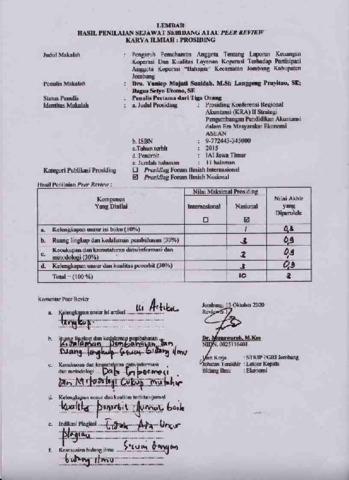 LEMBAR
HASIL PENILAIAN SEJAWAT SEBIDANG ATAU PEER REVIEW
KARYA ILMIAH : PROSIDING
Judul Makalah : Pengaruh Pemahaman Anggota Tentang Laporan Keuangan
Koperasi Dan Kualitas Layanan Koperasi Terhadap Partisipasi
Anggota Koperasi "Bahagia" Kecamatan Jombang Kabupaten
Jombang
Penulis Makalah : Dra. Muniep Mujati Suaidah, M.Si; Langgeng Prayitno, SE;
Bagus Setyo Utomo, SE
Status Penulis : Penulis Pertama dari Tiga Orang
Identitas Makalah : a. Judul Prosiding : Prosiding Konferensi Regional
Akuntansi (KRA) II Strategis
Pengembangan Pendidikan Akuntansi
dalam Era Masyarakat Ekonomi
ASEAN
b. ISBN : 9-772443-345000
c. Tahun terbit : 2015
d. Penerbit : IAI Jawa Timur
e. Jumlah halaman : 11 halaman
Kategori Publikasi Prosiding : Prosiding Forum Ilmiah Internasional
Prosiding Forum Ilmiah Nasional
Hasil Penilaian Peer Review :
Komponen Yang Dinilai
Nilai Maksimal Prosiding
Internasional
Nasional
Nilai Akhir yang Diperoleh
a. Kelengkapan unsur isi buku (10%) 1
b. Ruang lingkup dan kedalaman pembahasan (30%) 3 0,9
c. Kecukupan dan kemutahiran data/informasi dan metodologi (30%) 0,9
d. Kelengkapan unsur dan kualitas penerbit (30%) 3 0,9
Total = (100 %) 10
Komentar Peer Review
a. Kelengkapan unsur isi artikel Isi Artikel
lengkap
b. Ruang lingkup dan kedalaman pembahasan
Kedalaman pembahasan dan
ruang lingkup sesuai bidang ilmu
c. Kecukupan dan kemutahiran data
dan metodologi Data Informasi
dan Metodologi cukup mutahir
d. Kelengkapan unsur dan kualitas terbitan/jurnal
kualitas penerbit jurnal baik
e. Indikasi Plagiasi tidak Ada Unsur
plagiasi
f. Kesesuaian bidang ilmu Sesuai dengan
bidang ilmu
Jombang, Oktober 2020
Reviewer
Dr. Munawaroh, M.Kes
NIDN.
Unit Kerja : STKIP PGRI Jombang
Jabatan Terakhir : Lektor Kepala
Bidang Ilmu : Ekonomi